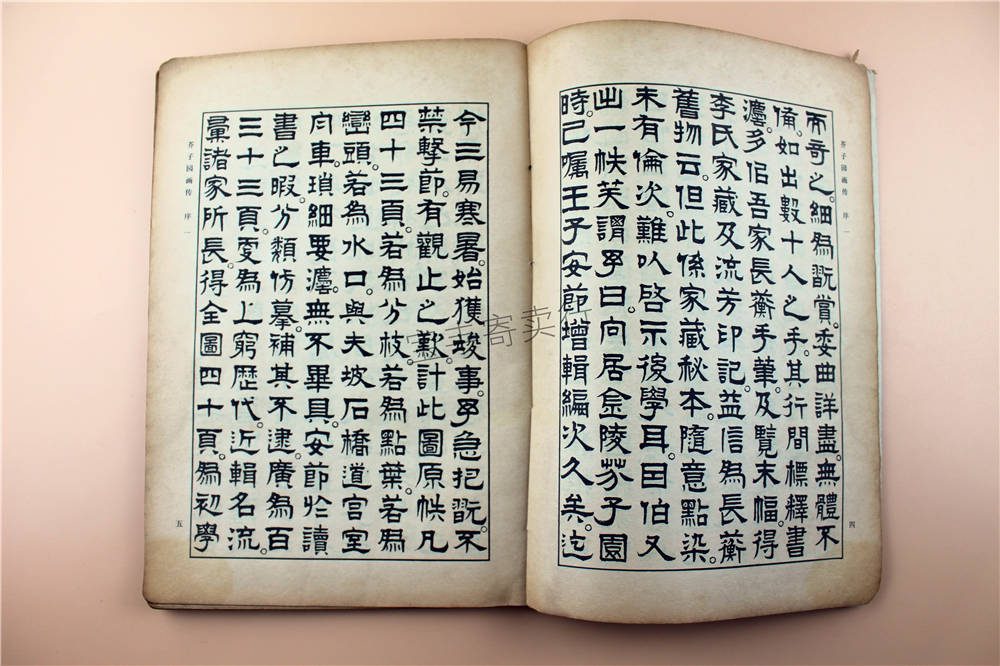 芥子园画传 序 一
四
而奇之。細為翫賞。委曲詳盡。無體不
備。如出數十人之手。其行間標釋書
灋。多佀吾家長蘅手筆。及覽末幅。得
李氏家藏及流芳印記。益信為長蘅
舊物云。但此係家藏秘本。隨意點染。
未有倫次。難以啓示後學耳。因伯又
出一帙。笑謂予曰。向居金陵芥子園
時。已囑王子安節增輯編次久矣。迄
今三易寒暑。始獲竣事。予急把翫。不
禁擊節。有觀止之歎。計此圖原帙凡
四十三頁。若為分枝。若為點葉。若為
巒頭。若為水口。與夫坡石橋道。宮室
舟車。瑣細要灋。無不畢具。安節於讀
書之暇。分類仿摹。補其不逮。廣為百
三十三頁。更為上窮歷代。近輯名流。
彙諸家所長。得全圖四十頁。為初學
芥子园画传 序 一
五
寄卖行